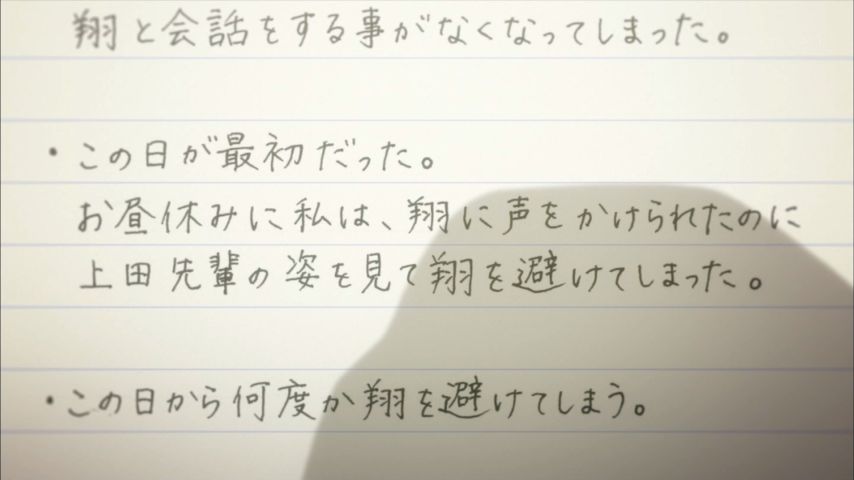 翔と会話をする事がなくなってしまった。
・この日が最初だった。
お昼休みに私は、翔に声をかけられたのに
上田先輩の姿を見て翔を避けてしまった。
・この日から何度か翔を避けてしまう。